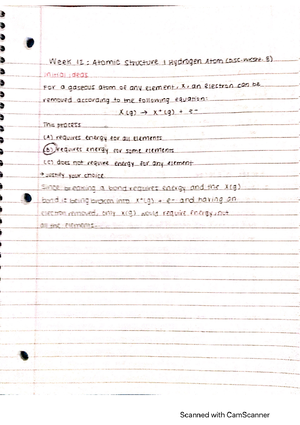 Week 12: Atomic Structure & Hydrogen Atom (DSC-Wkst. 8)
Initial ideas
For a gaseous atom of any element, X, an electron can be
removed according to the following equation:
X(g) → X⁺(g) + e⁻
This process
(A) requires energy for all elements
(B) requires energy for some elements
(C) does not require energy for any element
*Justify your choice
Since breaking a bond requires energy and the X(g)
bond is being broken into X⁺(g) + e⁻ and having an
electron removed, only X(g) would require energy, not
all the elements.
Scanned with CamScanner